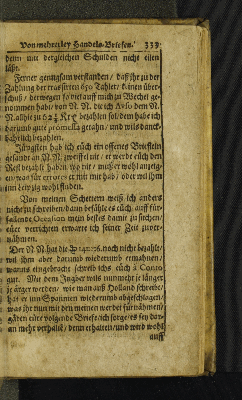 Von mehrerley Handels-Briefen. 333
denn mit dergleichen Schulden nicht eilen
läst.
Ferner genugsam verstanden / daß ihr zu der
Zahlung der trassirten 650 Tahler keinen über-
schuß / derwegen so viel auff mich zu Wechsel ge-
nommen habt / von N. N. die ich
N. allhie zu bezahlen sol / dem habe ich
darumb gute promessa gethan / und wils danck-
bahrlich bezahlen.
Jüngsthin hab ich euch ein offenes Brieflein
gesandt an N. N. zweiffel nit / er werde euch den
Rest bezahlt haben / wo nit / müsset wohl anzeig-
en was für errores er mit mir hab / oder wil ihm
in Leipzig wohl finden.
Von meinen Schettern weiß ich anders
nicht zu schreiben / dann befihle es euch / auff für-
fallende Occasion mein bestes damit zu suchen /
euer verrichten erwarte ich seiner Zeit zuver-
nähmen.
Der N. N. hat die noch nicht bezahlt /
wil ihm aber darumb wiederumb ermahnen /
wanns eingebracht schreib ichs euch à Conto
gut. Mit dem Ingber wils nunmehr je länger
je ärger werden / wie man auß Holland schreibt /
hat er umb wiederumb abgeschlagen /
was ihr nun mit den meinen werdet fürnähmen /
gäben eure volgende Briefe / ich sorge / es sey dar-
an mehr verhalst / denn erhalten / und wird wohl
auff